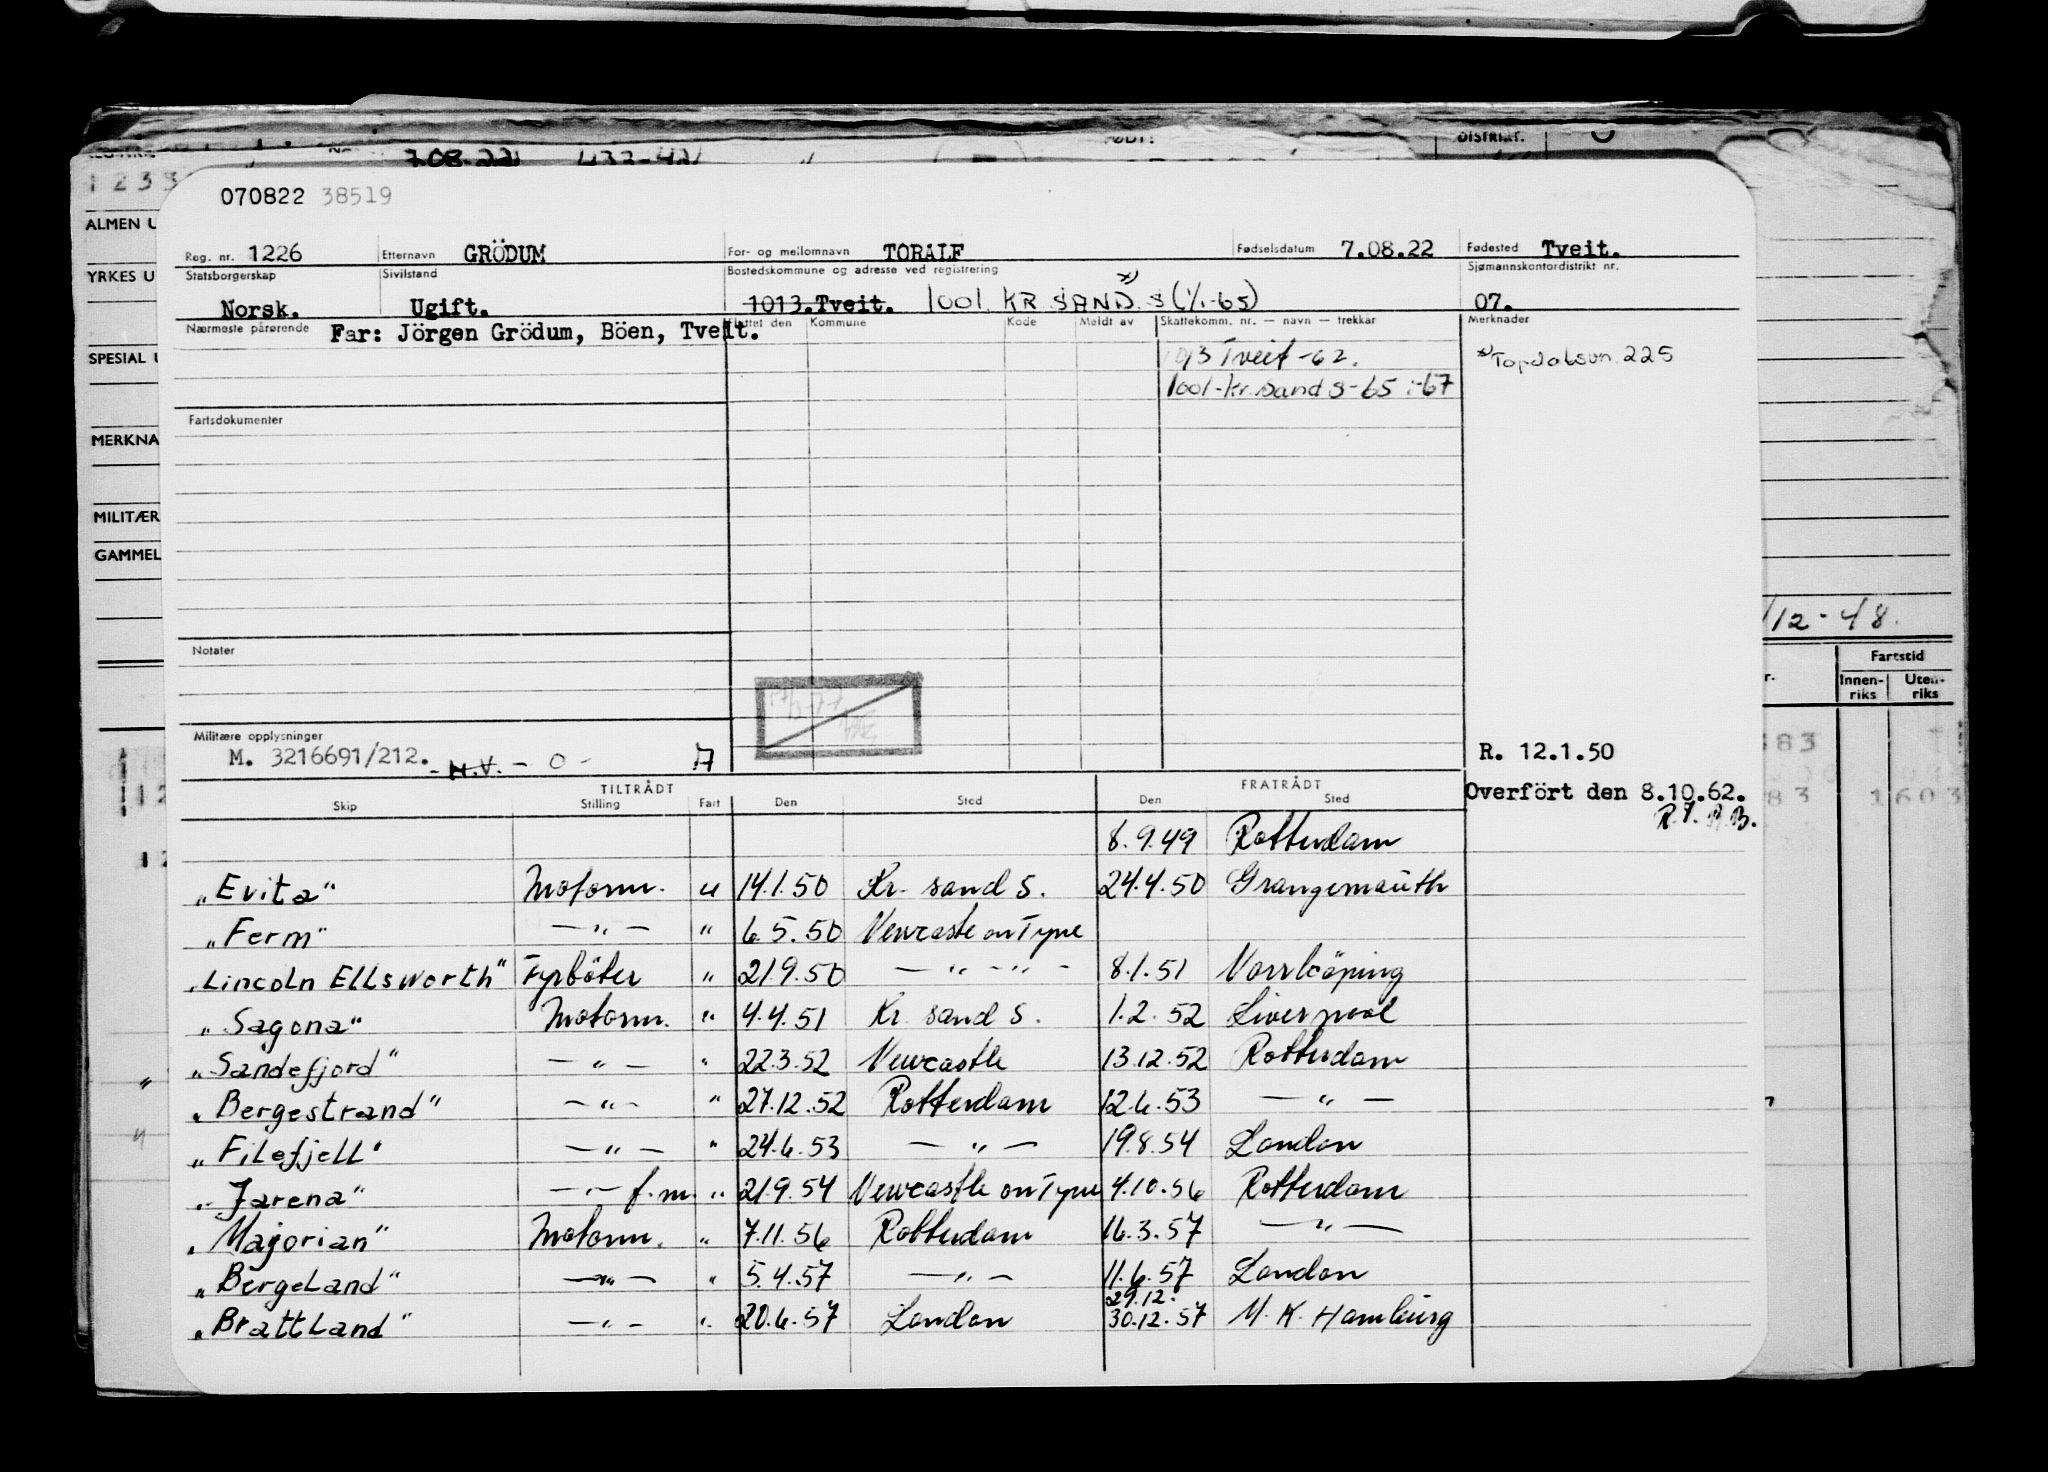 7.08.22
DISTRIKT.
1233
070822 38519
ALMEN U
YRKES U
SPESIAL U
MERKNA
MILITÆR
GAMMEL
Reg. nr. 1226 Etternavn GRÖDUM For- og mellomnavn TORALF Fødselsdatum 7.08.22 Fødested Tveit.
Statsborgerskap Sivilstand Bostedskommune og adresse ved registrering Sjømannskontordistrikt nr.
Norsk. Ugift. 1013.Tveit. 1001 KR SAND S (1/1-65) x) 07.
Nærmeste pårørende Far: Jörgen Grödum, Böen, Tveit. Flyttet den Kommune Kode Meldt av Skattekomm. nr. — navn — trekkår Merknader
1013 Tveit -62. x) Topdalsvn 225
1001-kr.sand S-65 -67
Fartsdokumenter
Notater
12-48.
Fartstid
Innen-riks Uten-riks
Militære opplysninger
M. 3216691/212. - H.V. - 0 - A
R. 12.1.50
TILTRÅDT FRATRÅDT
Skip Stilling Fart Den Sted Den Sted
Overfört den 8.10.62.
8.9.49 Rotterdam
"Evita" Motorm. u 14.1.50 Kr. sand S. 24.4.50 Grangemouth
"Ferm" — " — " 6.5.50 Newcastle on Tyne
"Lincoln Ellsworth" Fyrböter " 21.9.50 — " — " — 8.1.51 Norrköping
"Sagona" Motorm. " 4.4.51 Kr. sand S. 1.2.52 Liverpool
"Sandefjord" — " — " 22.3.52 Newcastle 13.12.52 Rotterdam
"Bergestrand" — " — " 27.12.52 Rotterdam 12.6.53 — " —
"Filefjell" — " — " 24.6.53 — " — 19.8.54 London
"Jarena" — " — f.m. " 21.9.54 Newcastle on Tyne 4.10.56 Rotterdam
"Majorian" Motorm. " 7.11.56 Rotterdam 16.3.57 — " —
"Bergeland" — " — " 5.4.57 — " — 11.6.57 London
29.12.
"Brattland" — " — " 20.6.57 London 30.12.57 M.K. Hamburg